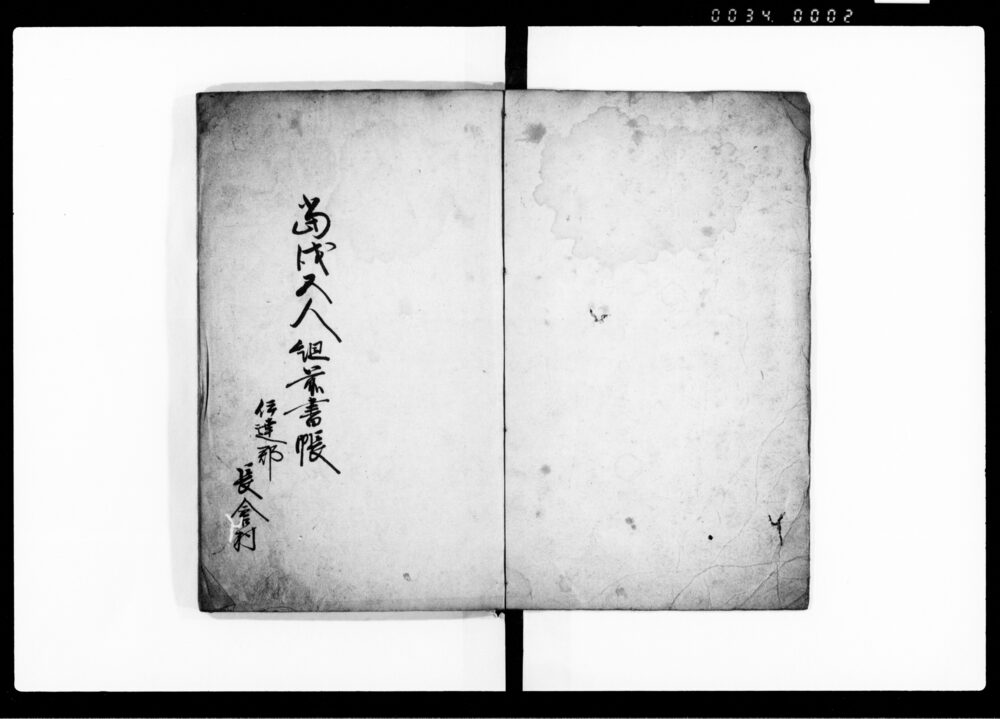 0034. 0002
當戌五人組前書帳
伊達郡
長倉村